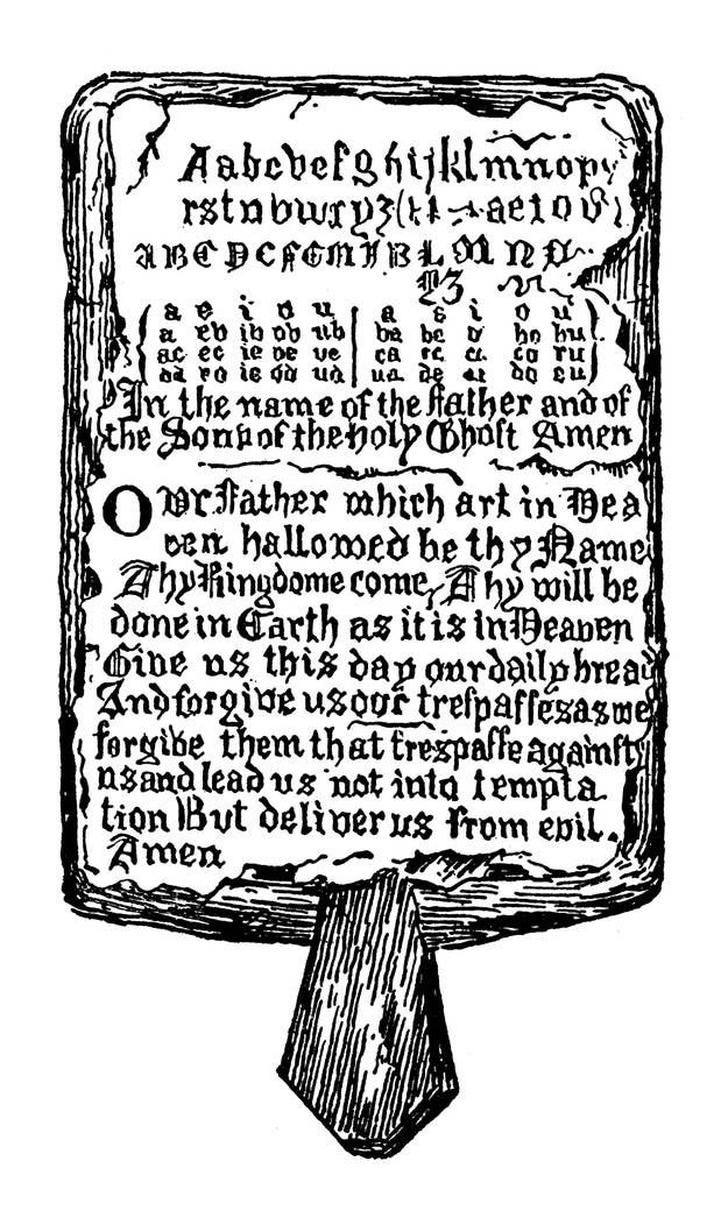 Aabcdefghijklmnop
rstuvwxyz aeiou
ABCD
a e i o u a e i o u
a eb ib ob ub ba be bo bu
ac ec ca co
ad
In the name of the Father and of
the Sonn of the holy Ghost Amen
OVr Father which art in Hea
ven hallowed be thy Name
Thy Kingdome come, Thy will be
done in Earth as it is in Heaven
Give us this day our daily bread
And forgive us our trespasses as we
forgive them that trespasse against
us and lead us not into tempta
tion But deliver us from evil.
Amen